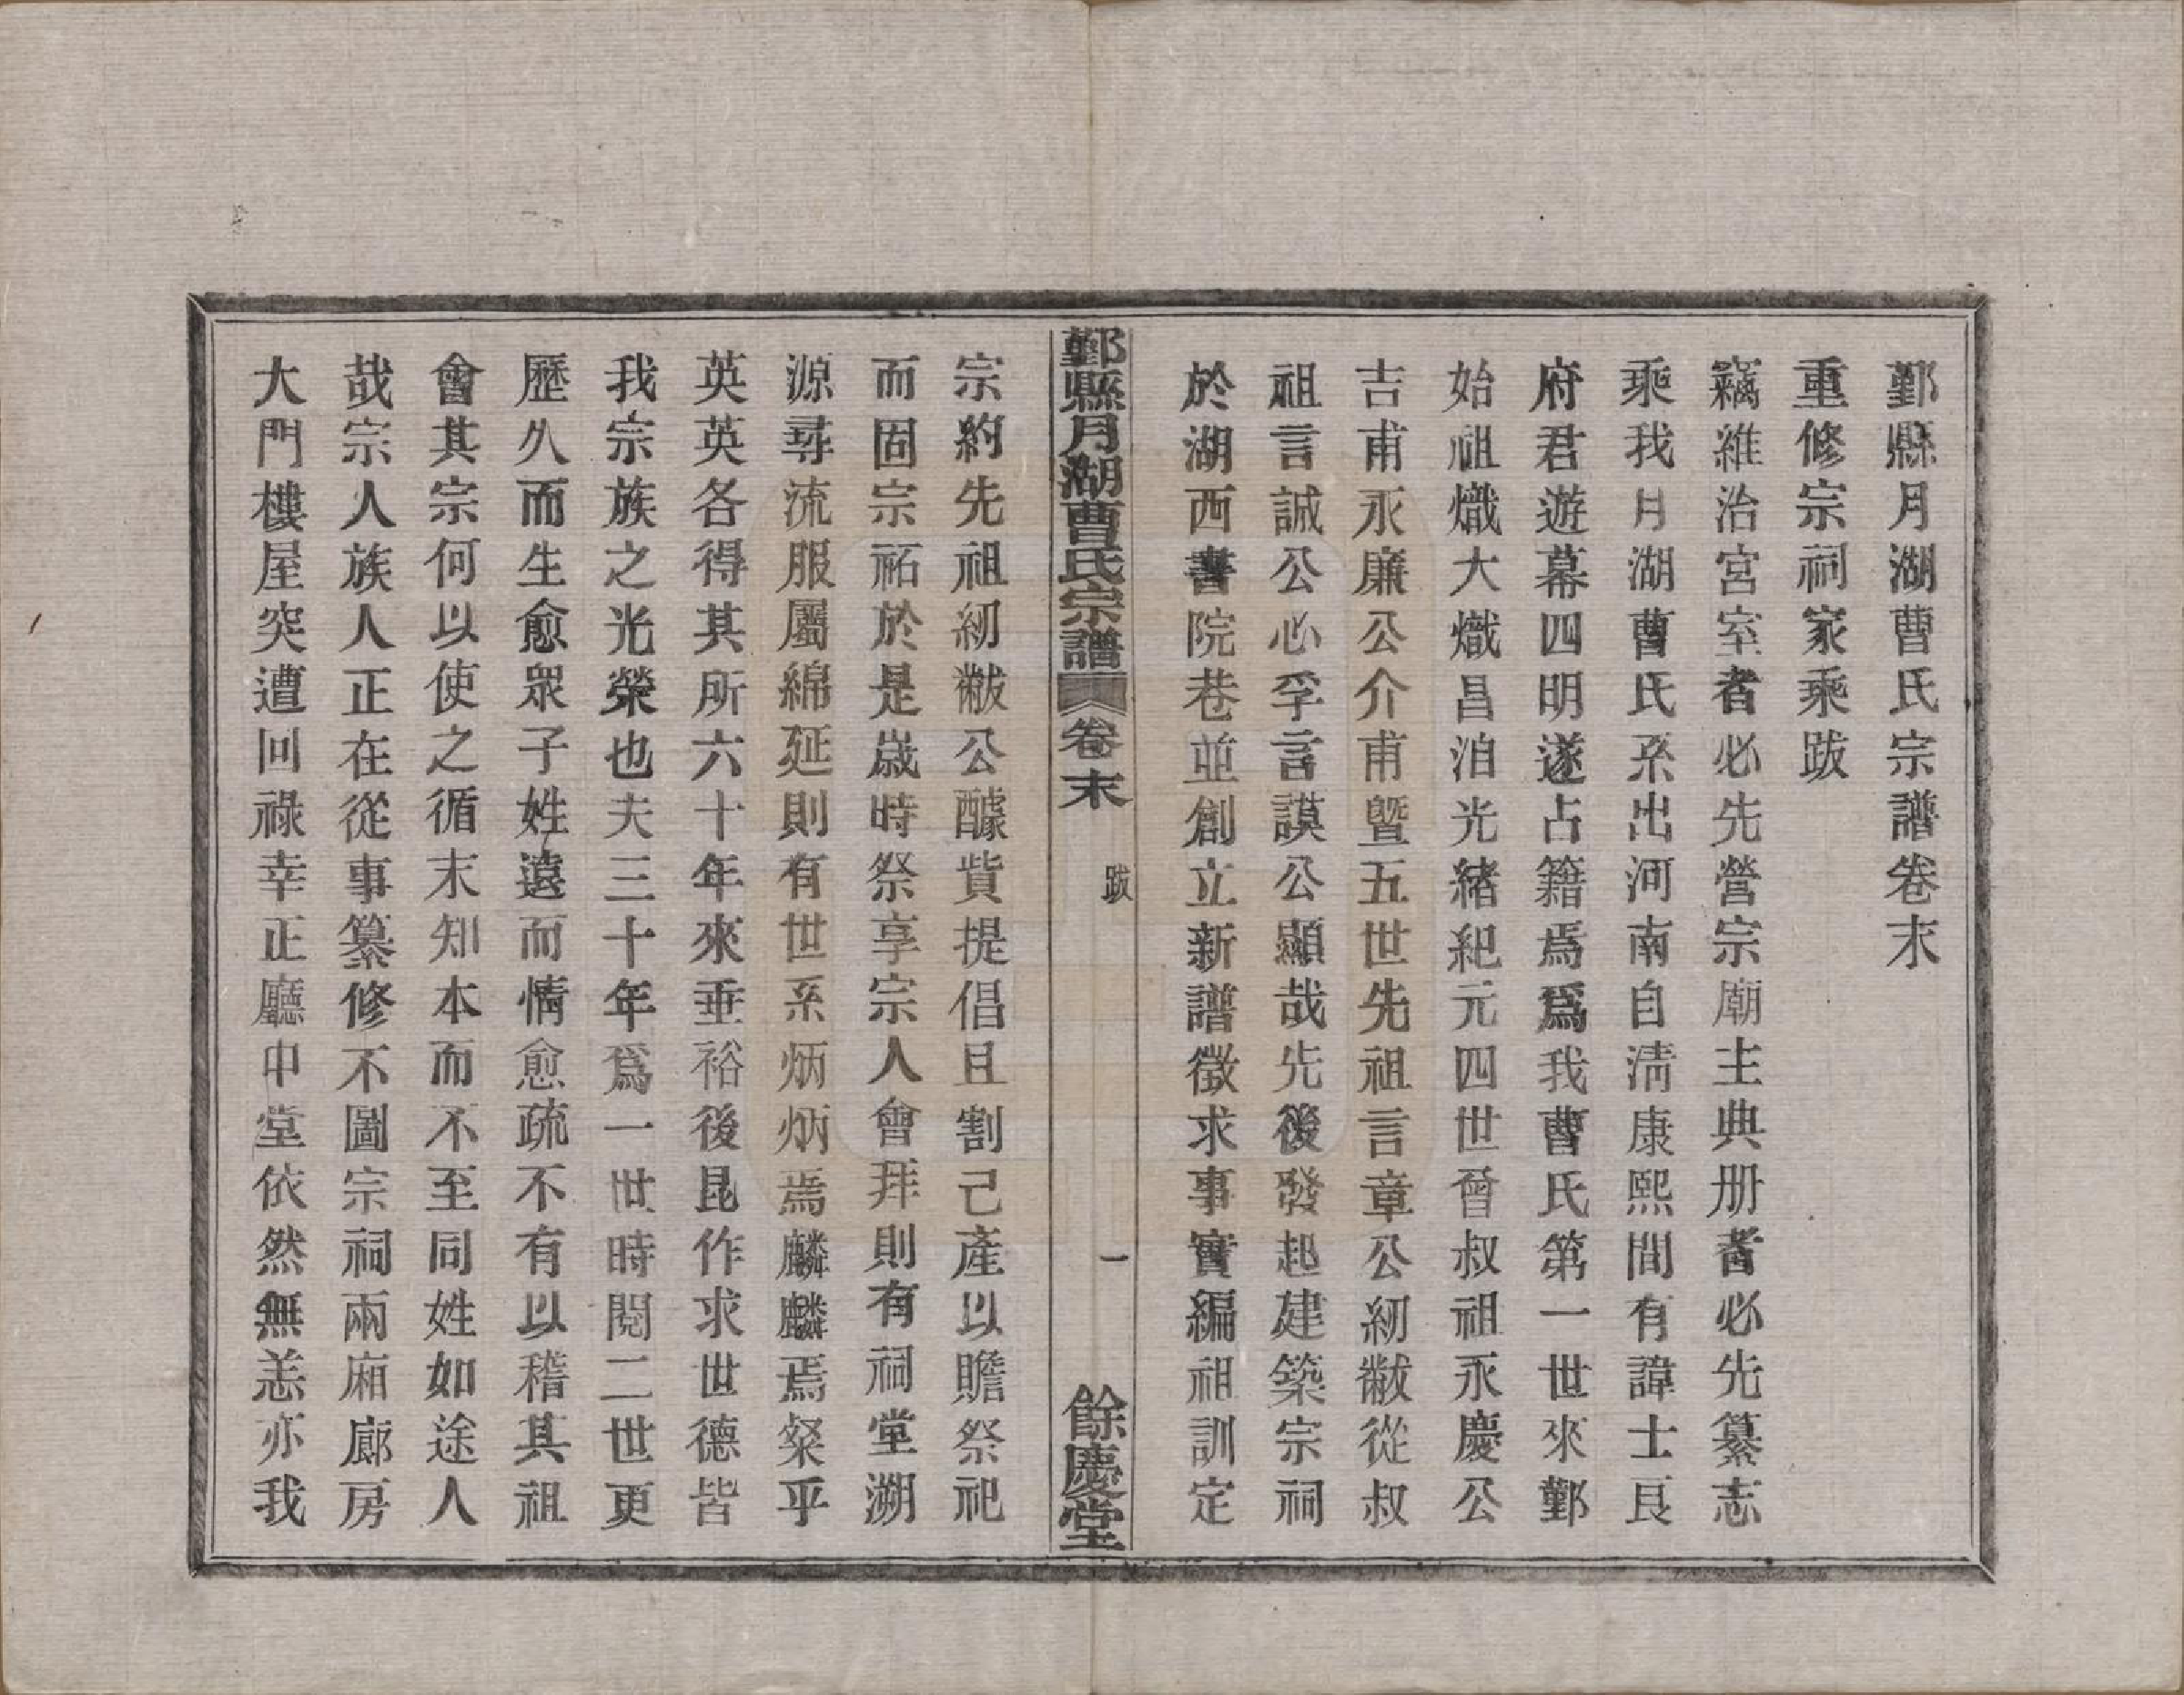 鄞縣月湖曹氏宗譜卷末
重修宗祠家乘跋
竊維治宮室者必先營宗廟主典册者必先纂志
乘我月湖曹氏系出河南自淸康熙間有諱士良
府君遊幕四明遂占籍焉爲我曹氏第一世來鄞
始祖熾大熾昌洎光緖紀元四世曾叔祖永慶公
吉甫永廉公介甫暨五世先祖言章公紉黻從叔
祖言誠公心孚言謨公顯哉先後發起建築宗祠
於湖西書院巷並創立新譜徵求事實編祖訓定
鄞縣月湖曹氏宗譜 卷末 跋 一 餘慶堂
宗約先祖紉黻公醵貲提倡且割己產以贍祭祀
而固宗祏於是歲時祭享宗人會拜則有祠堂溯
源尋流服屬綿延則有世系炳炳焉麟麟焉粲乎
英英各得其所六十年來垂裕後昆作求世德皆
我宗族之光榮也夫三十年爲一世時閱二世更
歷久而生愈眾子姓遠而情愈疏不有以稽其祖
會其宗何以使之循末知本而不至同姓如途人
哉宗人族人正在從事纂修不圖宗祠兩廂廊房
大門樓屋突遭回祿幸正廳中堂依然無恙亦我